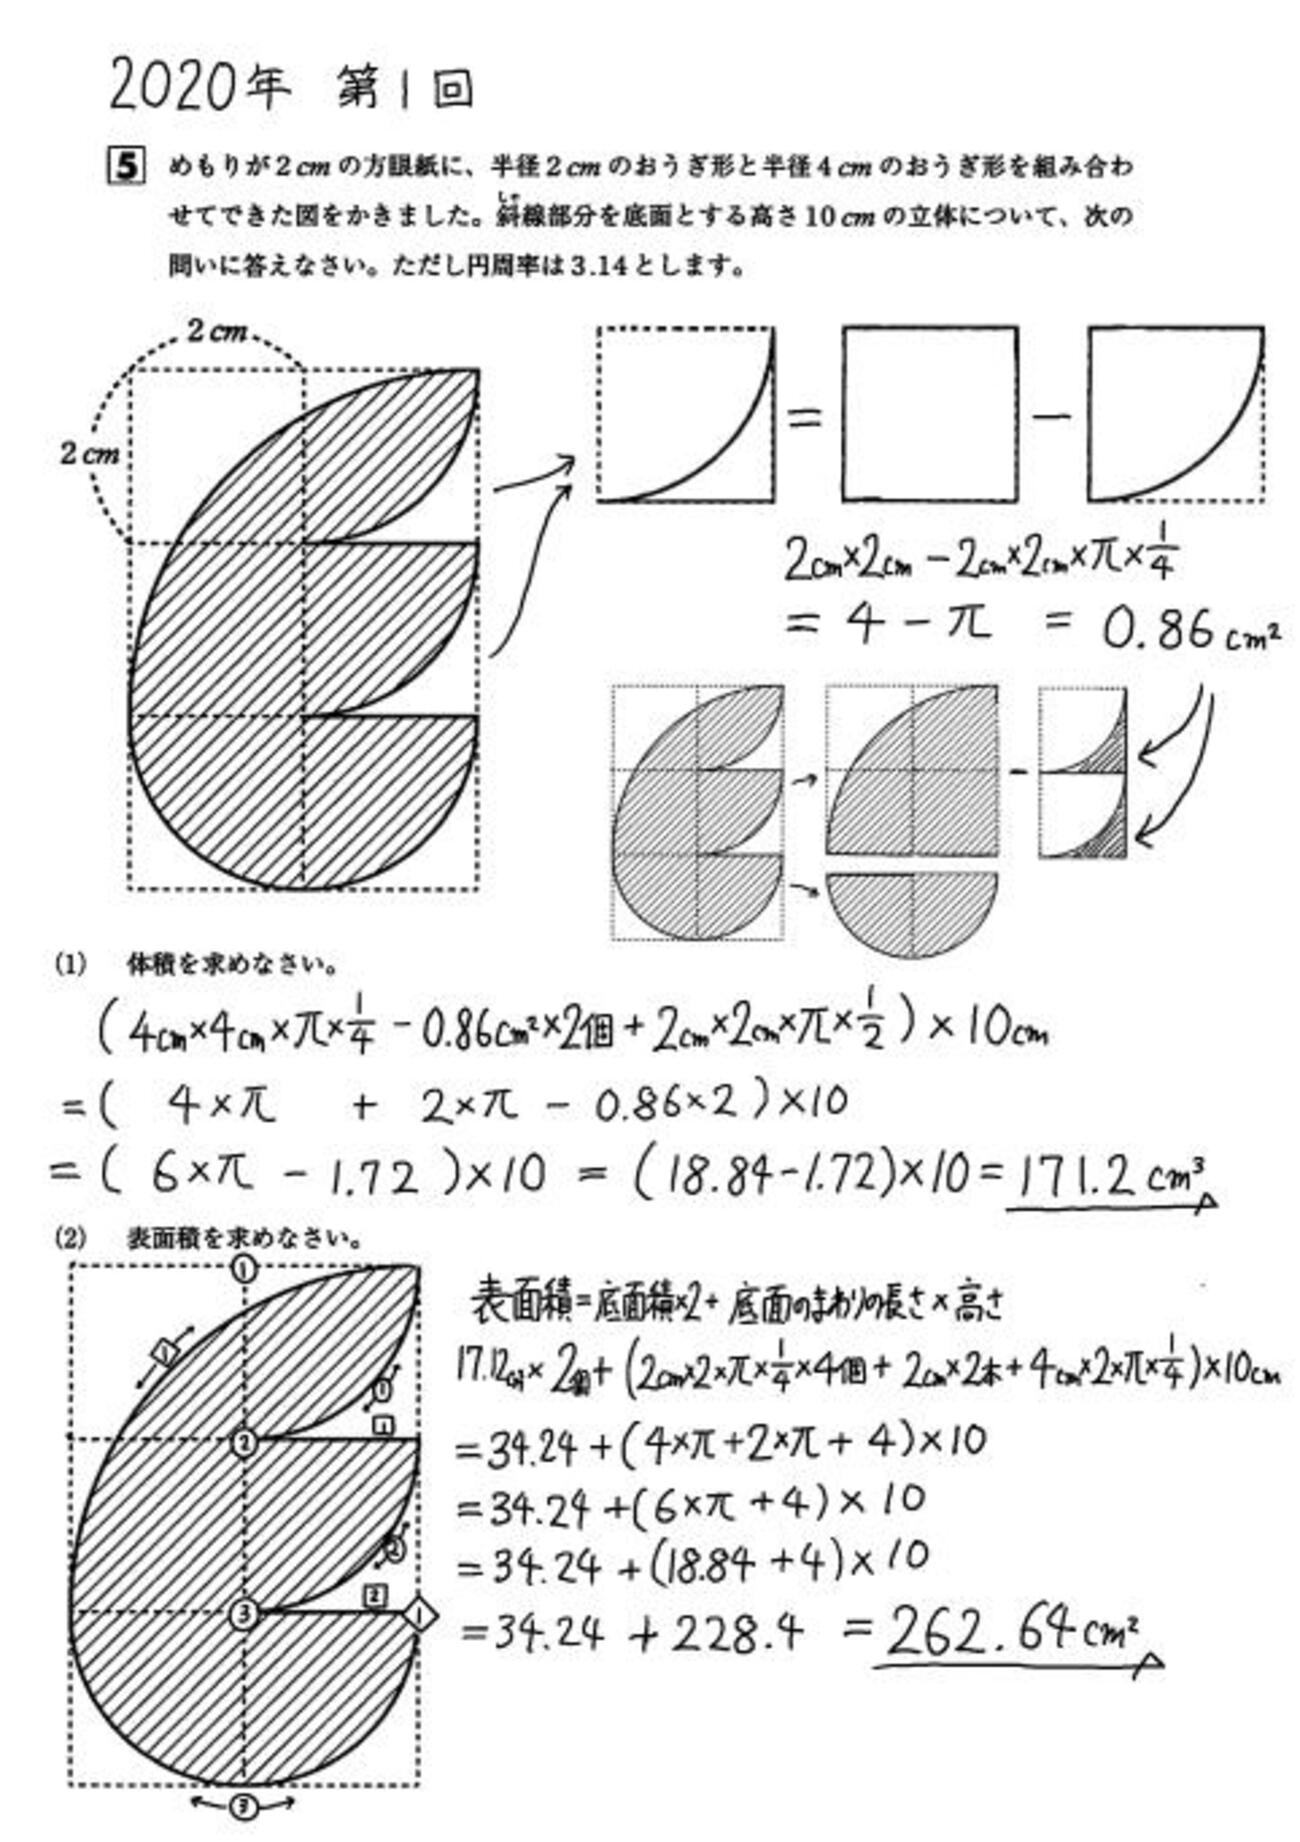 2020年 第1回
5 めもりが2cmの方眼紙に、半径2cmのおうぎ形と半径4cmのおうぎ形を組み合わ
しゃ
せてできた図をかきました。斜線部分を底面とする高さ10cmの立体について、次の
問いに答えなさい。ただし円周率は3.14とします。
2cm
2cm
= −
2cm×2cm − 2cm×2cm×π×1/4
= 4 − π = 0.86cm²
−
(1) 体積を求めなさい。
(4cm×4cm×π×1/4 − 0.86cm²×2個 + 2cm×2cm×π×1/2) × 10cm
= ( 4×π + 2×π − 0.86×2)×10
= ( 6×π − 1.72 )×10 = (18.84−1.72)×10 = 171.2cm³
(2) 表面積を求めなさい。
表面積=底面積×2+底面のまわりの長さ×高さ
17.12cm²×2個+(2cm×2×π×1/4×4個+2cm×2本+4cm×2×π×1/4)×10cm
=34.24+(4×π+2×π+4)×10
=34.24+(6×π+4)×10
=34.24+(18.84+4)×10
=34.24+228.4 =262.64cm²
①
1
①
②
1
②
③
2
1
③